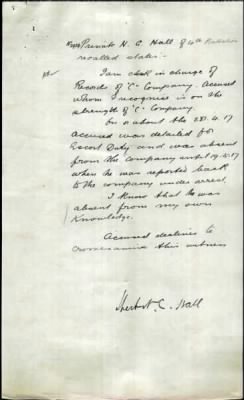 Private H. C. Hall of
recalled states:-
I am clerk in charge of
Records of "C" Company. Accused
whom I recognise is on the
strength of "C" Company.
On or about the 4.17
accused was detailed for
Escort Duty and was absent
from the company until 19.5.17
when he was reported back
to the company under arrest.
I know that he was
absent from my own
Knowledge.
Accused declines to
crossexamine this witness
Herbert. C. Hall